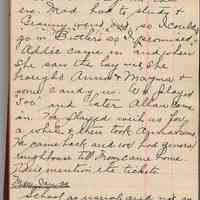 ens. Mad had to study &
Granny went out so I could
go in Butlers as I promised.
Addie came in and when
she saw the lay out she
brought Anna & Magna &
some candy us. We played
500 and later Allan came
in. He stayed with us for
a while & then took Ayn home.
He came back and we had general
roughhouse till Mom came home.
I did mention the tickets.
School as usual and not as